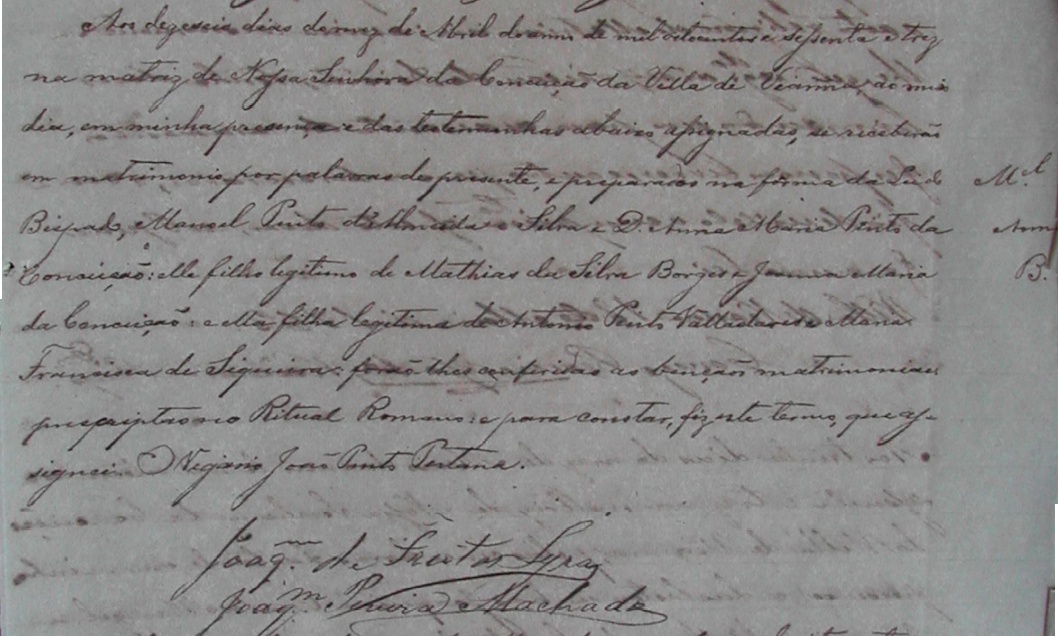 Aos dezeseis dias do mez de Abril do anno de mil oitocentos e sessenta e trez
na matriz de Nossa Senhora da Conceição da Villa de Vianna, ao meio
dia, em minha presença e das testemunhas abaixo assignadas, se receberão
em matrimonio por palavras de presente, e preparados na forma da Lei do M.el
Bispado, Manoel Pinto d'Almeida e Silva e D. Anna Maria Pinto da Anna
Conceição: elle filho legitimo de Mathias da Silva Borges e Joanna Maria B.
da Conceição: e ella filha legitima de Antonio Pinto Valladares e Maria
Francisca de Siqueira: forão lhes conferidas as bençãos matrimoniaes
prescriptas no Ritual Romano: e para constar, fiz este termo, que as-
signei. O Vigario João Pinto Pestana.
Joaq.m de Freitas Lyra
Joaq.m Pereira Machado